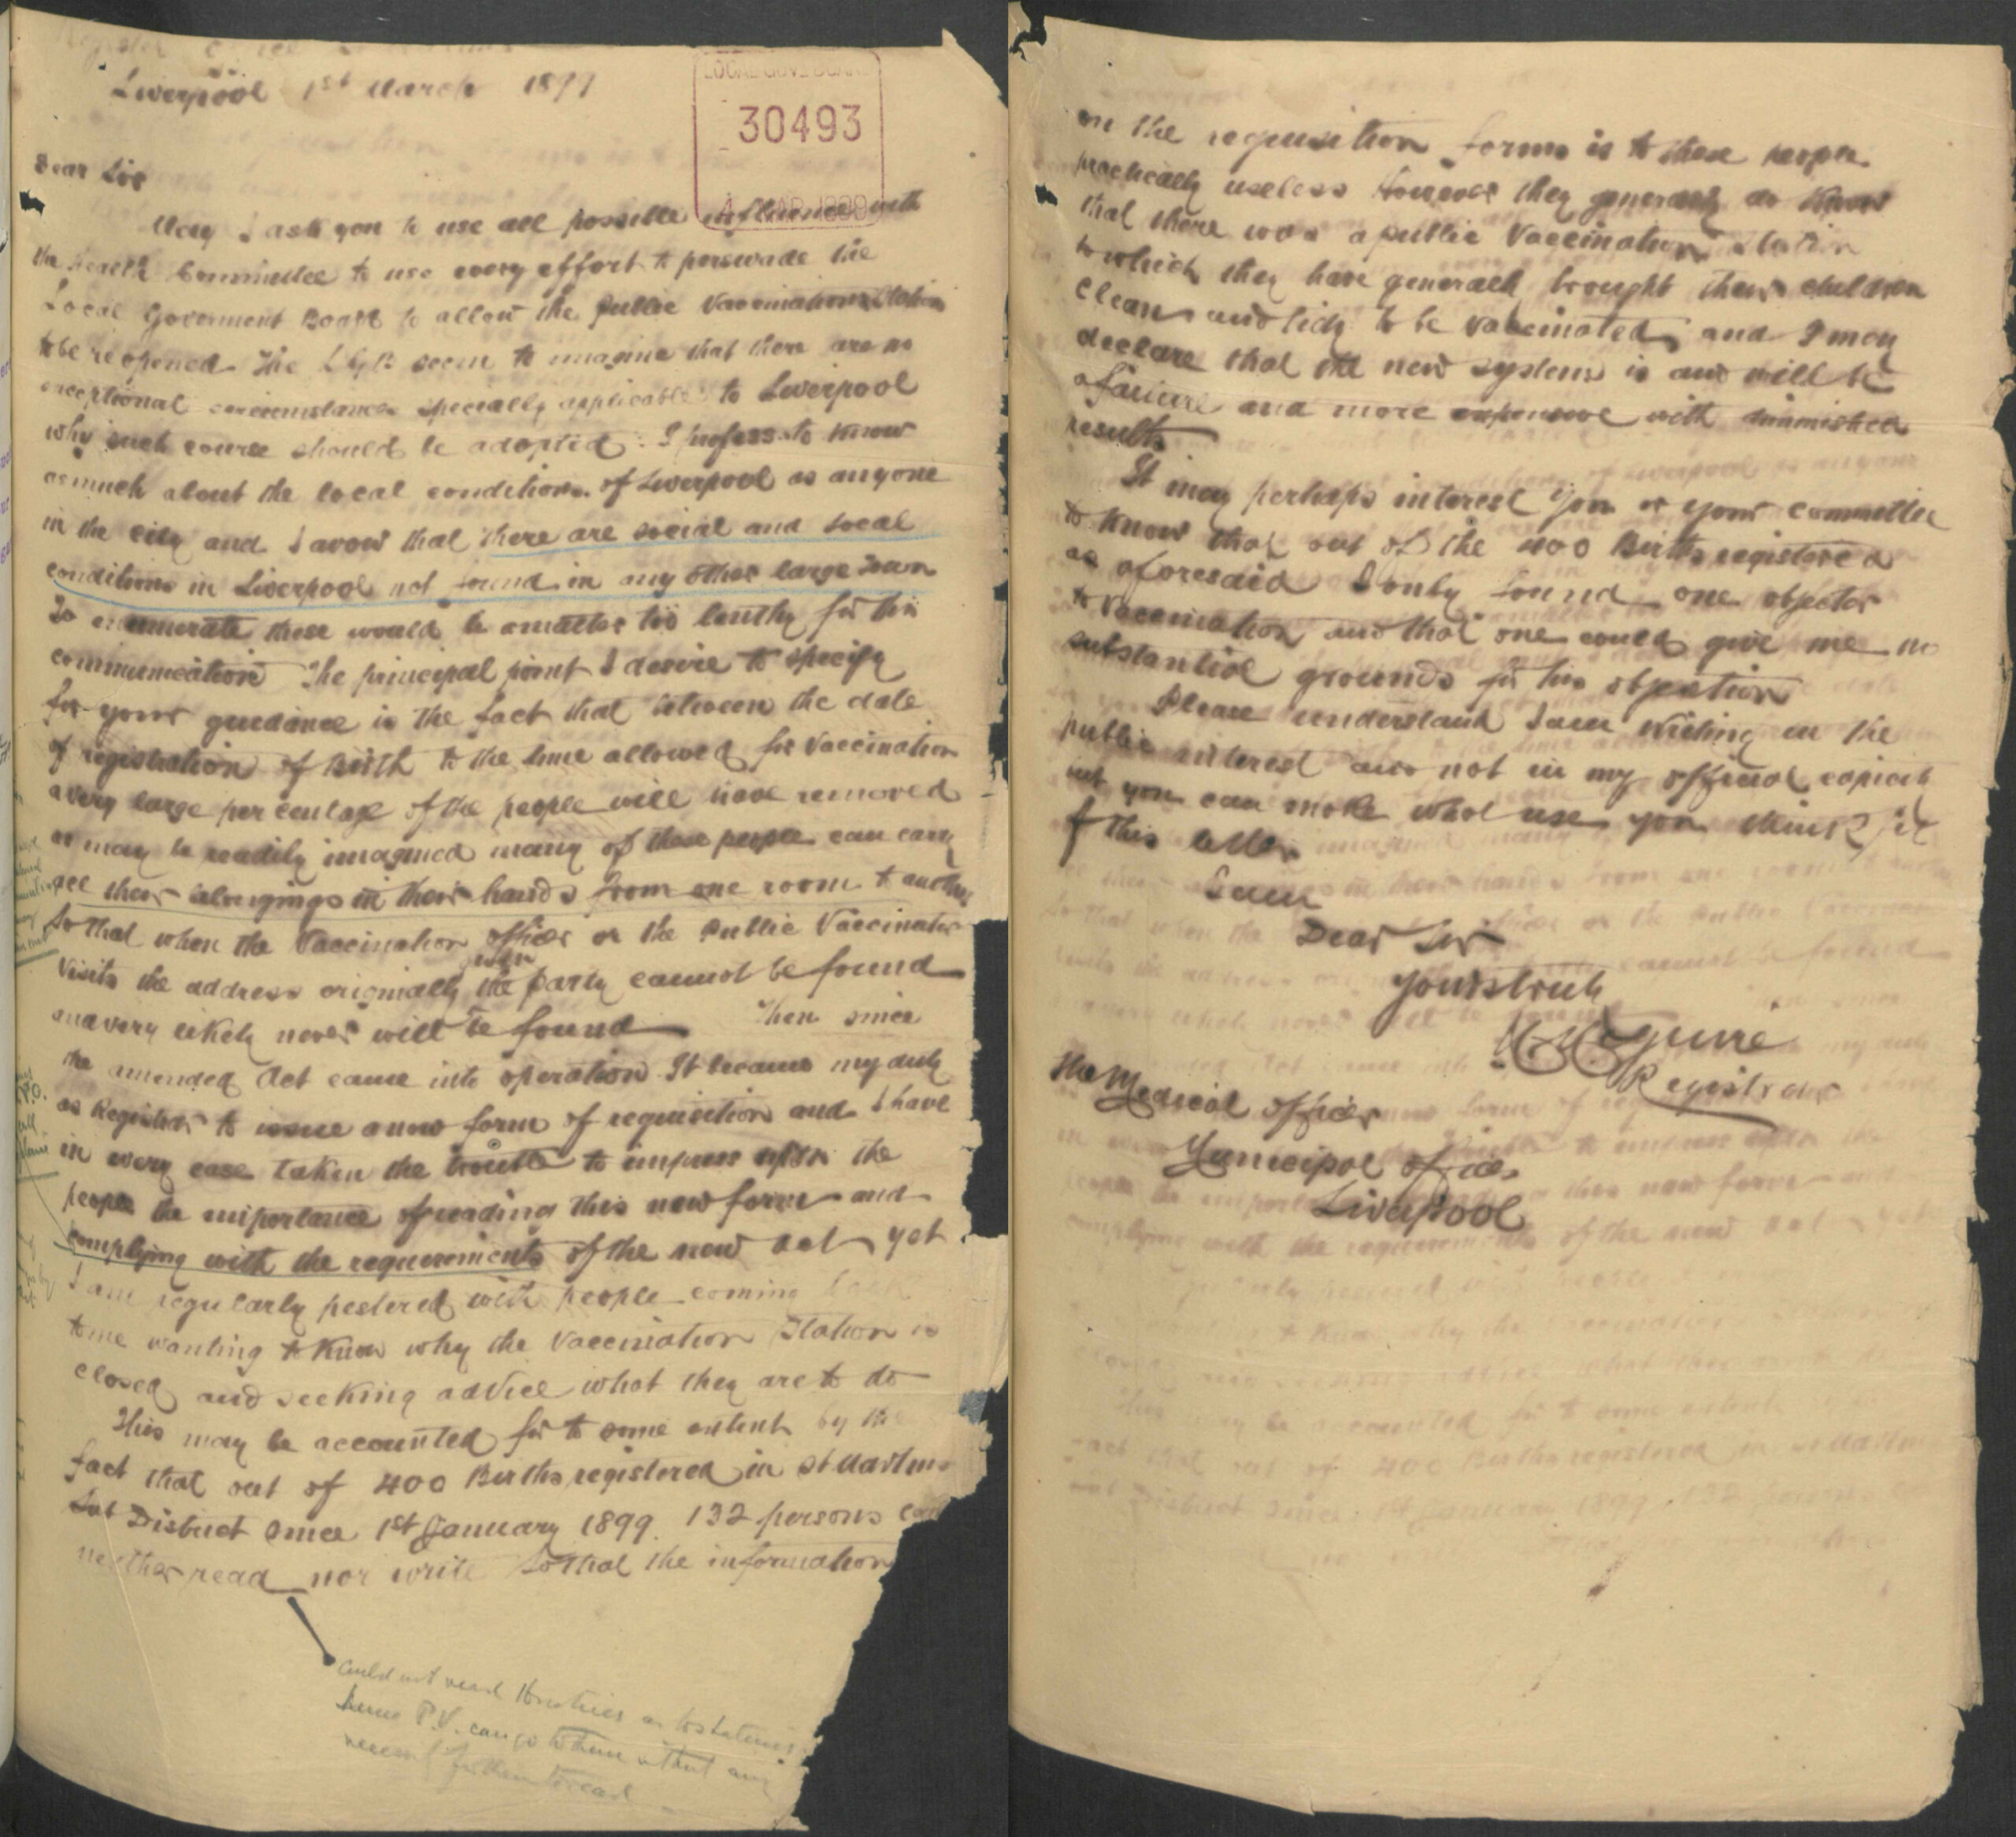 Register Office
Liverpool 1st March 1899
LOCAL GOVT BOARD
30493
4 MAR 1899
Dear Sir
May I ask you to use all possible influence with
the Health Committee to use every effort to perswade the
Local Goverment Board to allow the Public Vaccination Station
to be reopened. The L.G.B. seem to imagine that there are no
exceptional circumstances specially applicable to Liverpool
why such course should be adopted. I profess to know
as much about the local conditions of Liverpool as anyone
in the city and I avow that there are social and local
conditions in Liverpool not found in any other large Town
To enumerate these would be a matter too lenthy for this
communication The principal point I desire to specify
for your guidance is the fact that between the date
of registration of Birth to the time allowed for Vaccination
a very large per centage of the people will have removed
as may be readily imagined many of these people can carry
all their belongings in their hands from one room to another
So that when the Vaccination officer or the Public Vaccinator
visits the address originally given the party cannot be found
and very likely never will be found Then since
the amended Act came into operation It became my duty
as Registrar to issue a new form of requisition and I have
in every case taken the trouble to impress upon the
people the importance of reading this new form and
complying with the requirements of the new Act yet
I am regularly pestered with people coming back
to me wanting to know why the Vaccination Station is
closed and seeking advice what they are to do
This may be accounted for to some extent by the
fact that out of 400 Births registered in St Martins
Sub District since 1st January 1899. 132 persons could
neither read nor write So that the information
could not read the notices as to stations
P.V. can go to them without any
for them to read
on the requisition forms is to these people
practically useless However they generally do know
that there was a public Vaccination Station
to which they have generally brought their children
clean and tidy to be vaccinated, and I may
declare that the new system is and will be
a failure and more expensive with diminished
results
It may perhaps interest you or your committee
to know that out of the 400 Births registered
as aforesaid I only found one objector
to Vaccination and that one could give me no
substantial grounds for his objection
Please understand I am writing in the
public interest and not in my official capicity
but you can make what use you think fit
of this letter
I am
Dear Sir
Yours truly
McGuire
Registrar
The Medical Officer
Municipal Offices
Liverpool